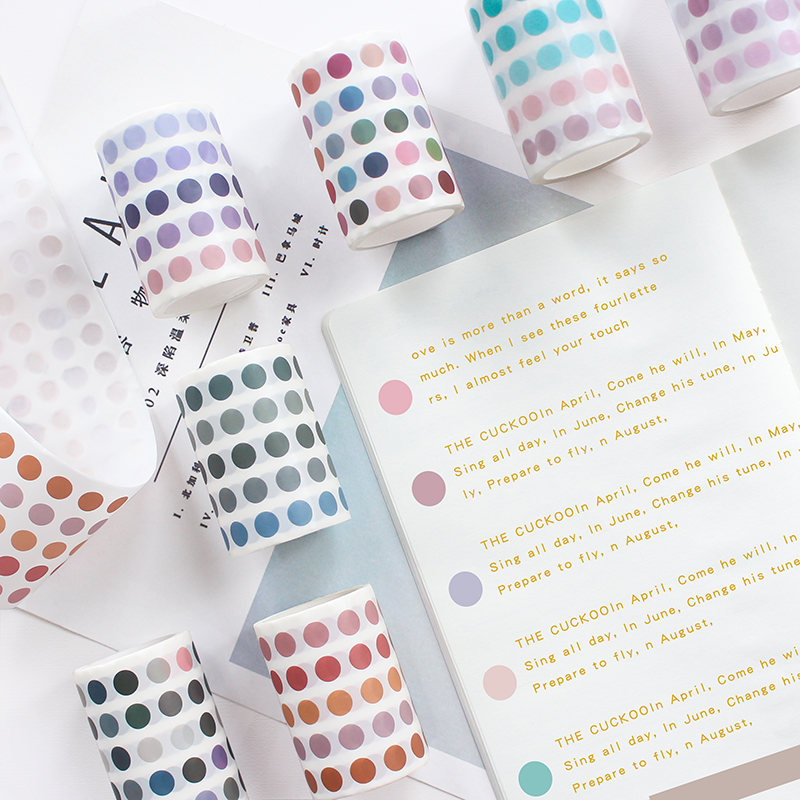 LA
02 深陷温柔
物
III. 巴拿马城
VI. 时计
I. 北加
IV.
ove is more than a word, it says so
much. When I see these fourlette
rs, I almost feel your touch
THE CUCKOOIn April, Come he will, In May,
Sing all day, In June, Change his tune, In Ju
ly, Prepare to fly, n August,
THE CUCKOOIn April, Come he will, In May,
Sing all day, In June, Change his tune, In
Prepare to fly, n August,
THE CUCKOOIn April, Come he will, In
Sing all day, In June, Change his tune
Prepare to fly, n August,
THE CUCKOOIn April, Come he wi
Sing all day, In June, Chang
Prepare to fly, n August,